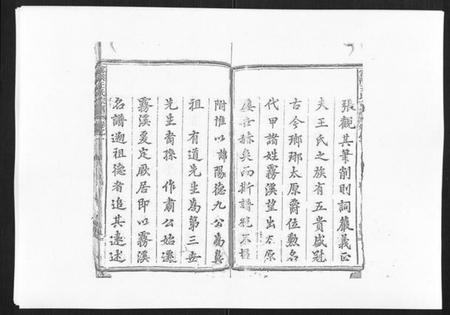 張觀其筆削則詞嚴義正
夫王氏之族有五貴盛冠
古今瑯琊太原爵位勲名
代甲諸姓霧溪望出太原
矣而斯譜
附惟以諱陽德九公為鼻
祖 有道先生為第三世
先生裔孫 作肅公始遷
霧溪爰定厥居即以霧溪
名譜遡祖德者追其遠述